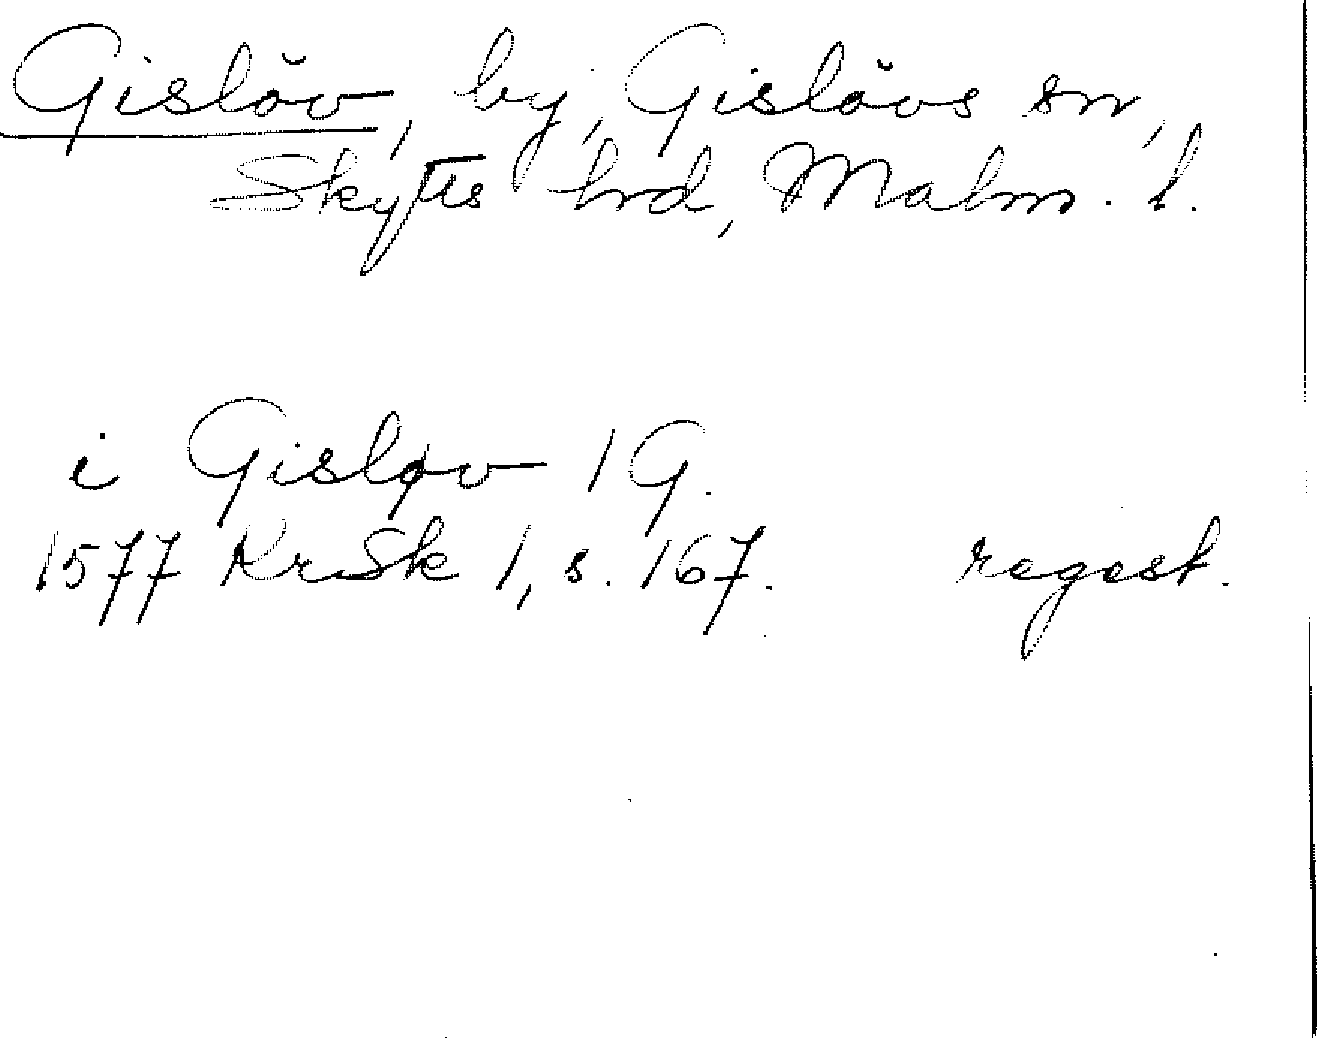 Gislöv, by, Gislövs sn,
Skytts hrd, Malm. l.
i Gisløv 1 G.
1577 KrSk 1, s. 167. regest.